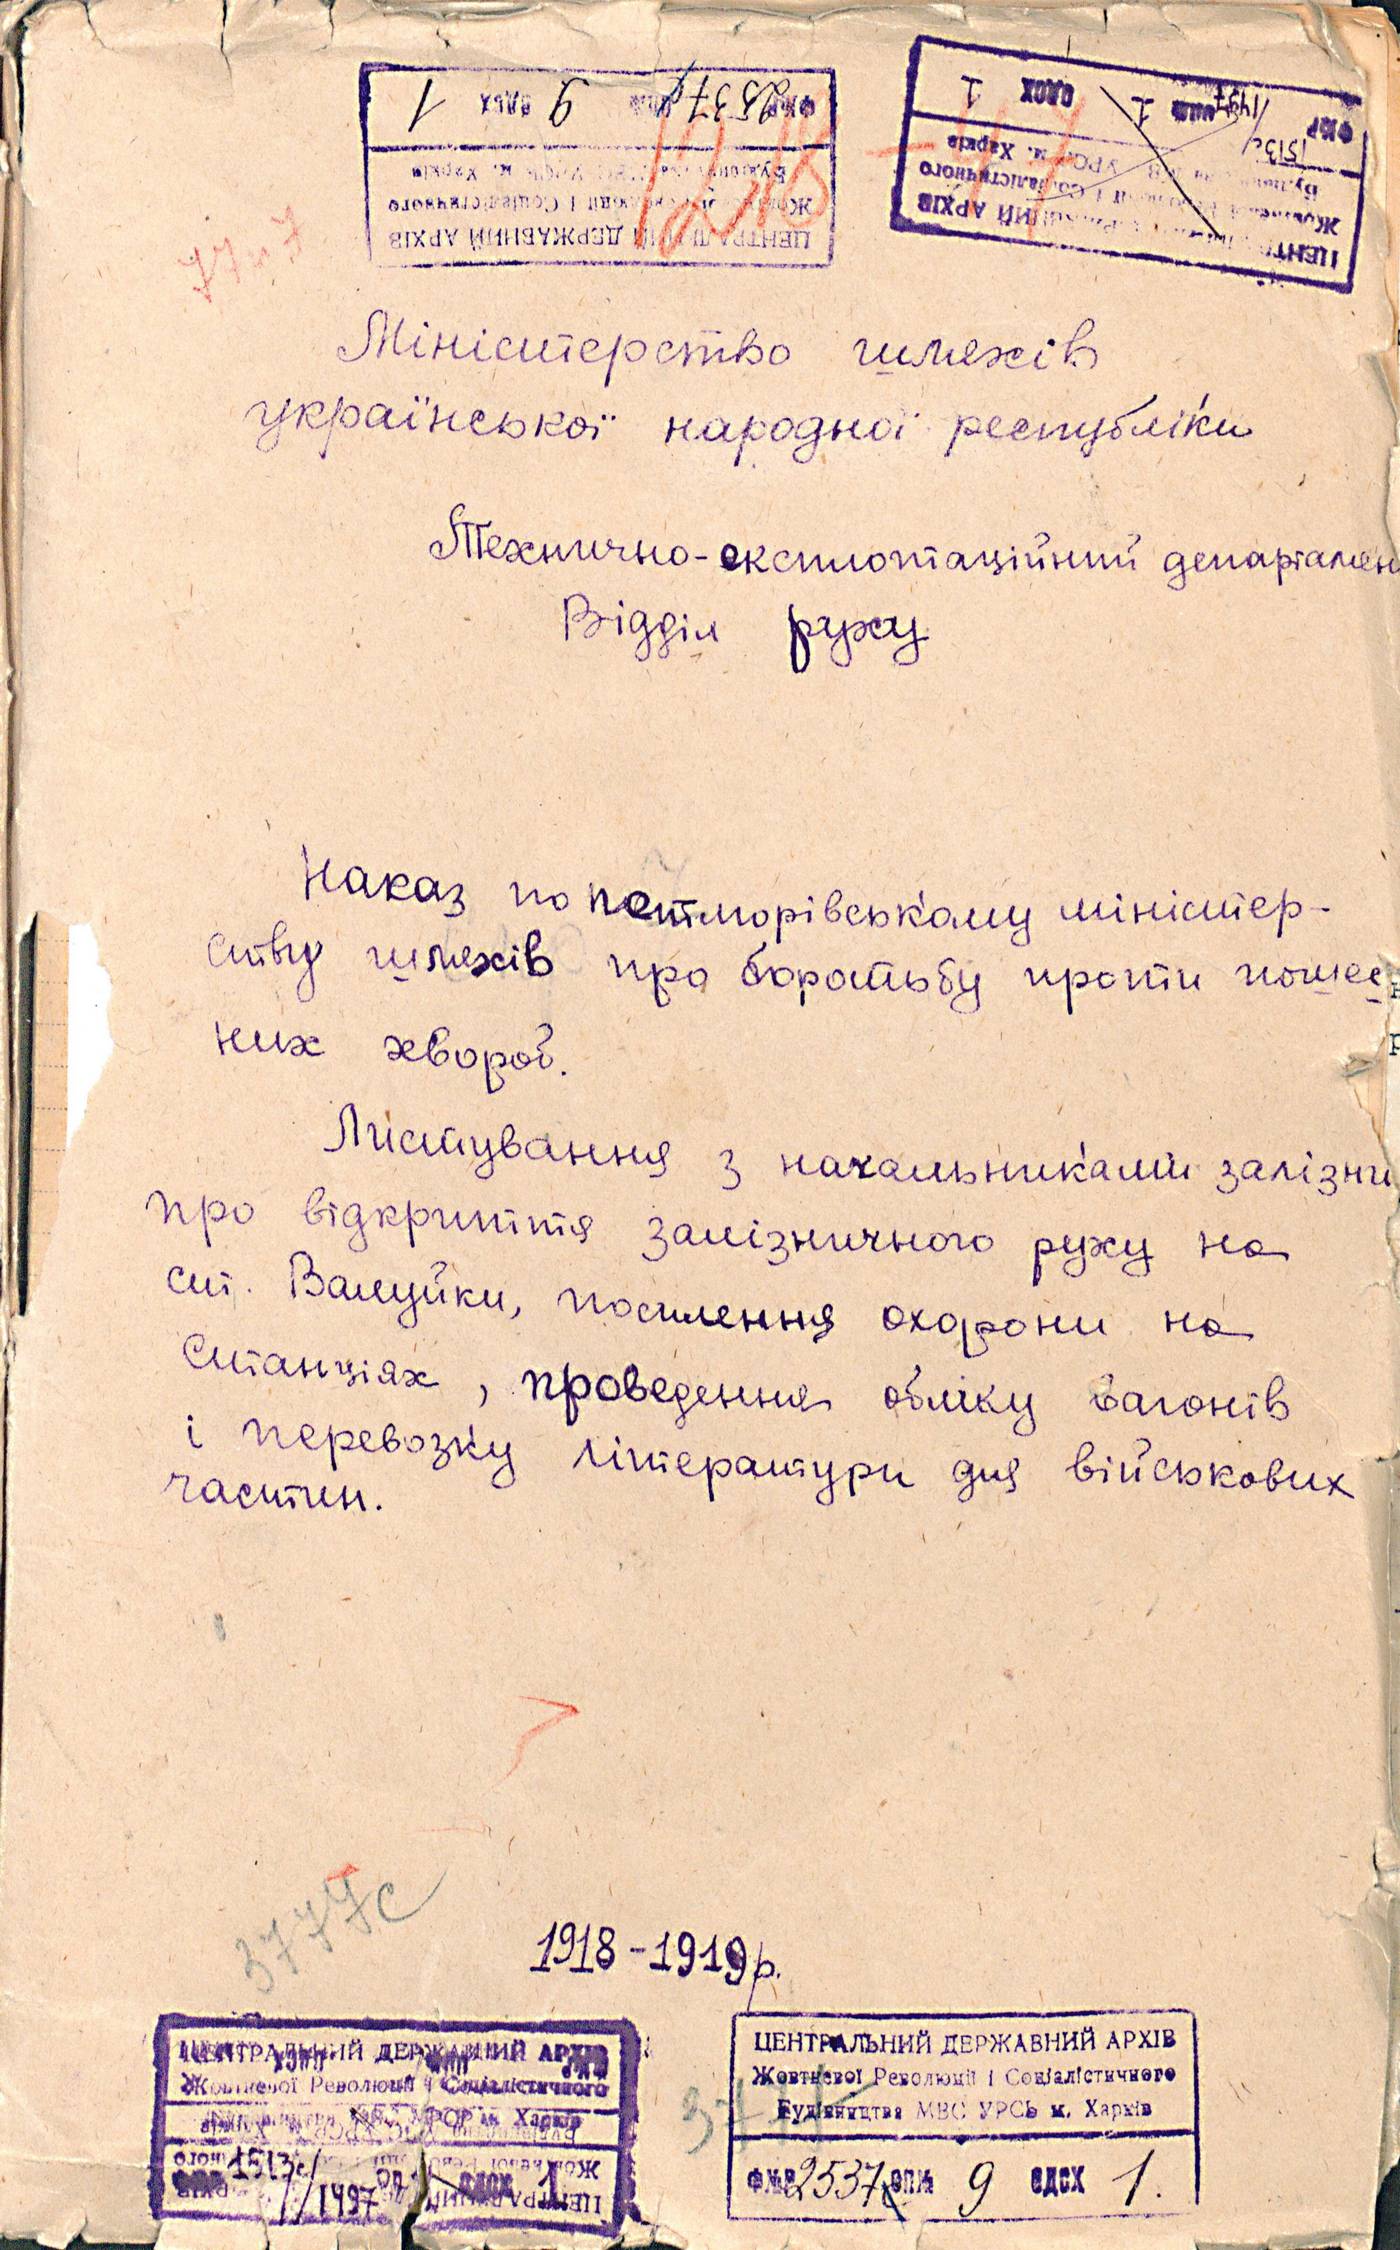 ЦЕНТРАЛЬНИЙ ДЕРЖАВНИЙ АРХІВ
Жовтневої Революції і Соціалістичного
Будівництва УРСР м. Харків
ФМР 2537 ОПМ 9 ОДСХ 1
1218-47
ЦЕНТРАЛЬНИЙ ДЕРЖАВНИЙ АРХІВ
Жовтневої Революції і Соціалістичного
УРСР м. Харків
ФМР 1513с/1497 ОПМ 1 ОДСХ 1
Міністерство шляхів
української народної республіки
Технично-експлотаційний департамен
Відділ руху
Наказ по петлюрівському міністер-
ству шляхів про боротьбу проти пошес
них хвороб.
Листування з начальниками залізни
про відкриття залізничного руху на
ст. Валуйки, посилення охорони на
станціях, проведення обліку вагонів
і перевозку літератури для військових
частин.
3777с
1918-1919р.
ЦЕНТРАЛЬНИЙ ДЕРЖАВНИЙ АРХІВ
Жовтневої Революції і Соціалістичного
УРСР м. Харків
1513с/1497 ОДСХ 1
ЦЕНТРАЛЬНИЙ ДЕРЖАВНИЙ АРХІВ
Жовтневої Революції і Соціалістичного
Будівництва МВС УРСЬ м. Харків
ФМР 2537 ОПМ 9 ОДСХ 1.